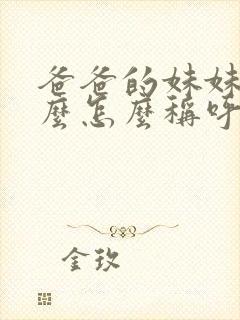 爸爸的妹妹
麼怎麼稱呼
金玫